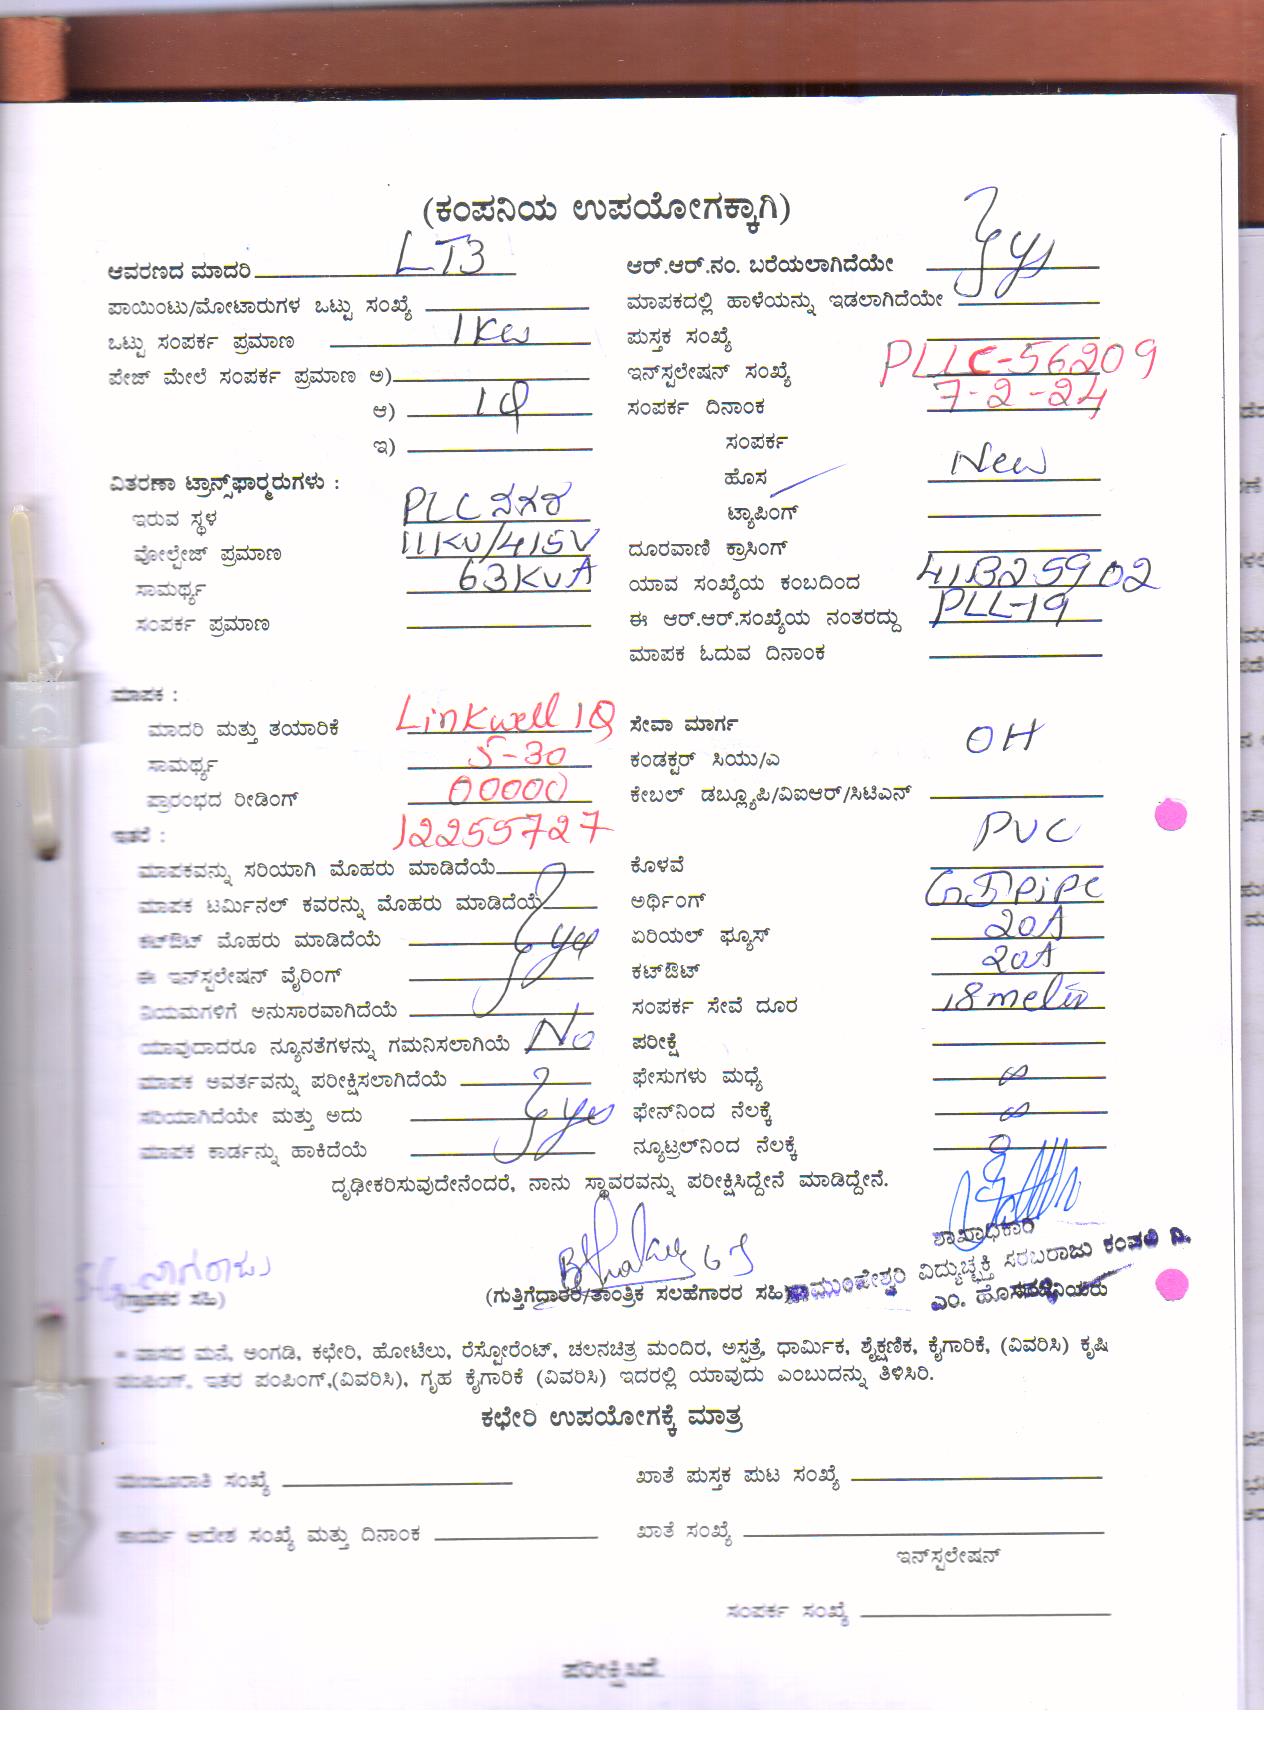 (ಕಂಪನಿಯ ಉಪಯೋಗಕ್ಕಾಗಿ)
ಆವರಣದ ಮಾದರಿ LT3
ಪಾಯಿಂಟು/ಮೋಟಾರುಗಳ ಒಟ್ಟು ಸಂಖ್ಯೆ
ಒಟ್ಟು ಸಂಪರ್ಕ ಪ್ರಮಾಣ 1Kw
ಪೇಜ್ ಮೇಲೆ ಸಂಪರ್ಕ ಪ್ರಮಾಣ ಅ)
ಆ) 1φ
ಇ)
ವಿತರಣಾ ಟ್ರಾನ್ಸ್‌ಫಾರ್‍ಮರುಗಳು :
ಇರುವ ಸ್ಥಳ PLC ನಗರ
ವೋಲ್ಟೇಜ್ ಪ್ರಮಾಣ 11KV/415V
ಸಾಮರ್ಥ್ಯ 63KVA
ಸಂಪರ್ಕ ಪ್ರಮಾಣ
ಆರ್.ಆರ್.ನಂ. ಬರೆಯಲಾಗಿದೆಯೇ yes
ಮಾಪಕದಲ್ಲಿ ಹಾಳೆಯನ್ನು ಇಡಲಾಗಿದೆಯೇ
ಪುಸ್ತಕ ಸಂಖ್ಯೆ
ಇನ್‌ಸ್ಟಲೇಷನ್ ಸಂಖ್ಯೆ PLLC-56209
ಸಂಪರ್ಕ ದಿನಾಂಕ 7-2-24
ಸಂಪರ್ಕ
ಹೊಸ New
ಟ್ಯಾಪಿಂಗ್
ದೂರವಾಣಿ ಕ್ರಾಸಿಂಗ್
ಯಾವ ಸಂಖ್ಯೆಯ ಕಂಬದಿಂದ 41B25902
ಈ ಆರ್.ಆರ್.ಸಂಖ್ಯೆಯ ನಂತರದ್ದು PLL-19
ಮಾಪಕ ಓದುವ ದಿನಾಂಕ
ಮಾಪಕ :
ಮಾದರಿ ಮತ್ತು ತಯಾರಿಕೆ Linkwell 1φ
ಸಾಮರ್ಥ್ಯ 5-30
ಪ್ರಾರಂಭದ ರೀಡಿಂಗ್ 00000
ಇತರೆ : 12255727
ಮಾಪಕವನ್ನು ಸರಿಯಾಗಿ ಮೊಹರು ಮಾಡಿದೆಯೆ
ಮಾಪಕ ಟರ್ಮಿನಲ್ ಕವರನ್ನು ಮೊಹರು ಮಾಡಿದೆಯೆ
ಕಟ್‌ಔಟ್ ಮೊಹರು ಮಾಡಿದೆಯೆ yes
ಈ ಇನ್‌ಸ್ಟಲೇಷನ್ ವೈರಿಂಗ್
ನಿಯಮಗಳಿಗೆ ಅನುಸಾರವಾಗಿದೆಯೆ
ಯಾವುದಾದರೂ ನ್ಯೂನತೆಗಳನ್ನು ಗಮನಿಸಲಾಗಿಯೆ No
ಮಾಪಕ ಅವರ್ತವನ್ನು ಪರೀಕ್ಷಿಸಲಾಗಿದೆಯೆ
ಸರಿಯಾಗಿದೆಯೇ ಮತ್ತು ಅದು yes
ಮಾಪಕ ಕಾರ್ಡನ್ನು ಹಾಕಿದೆಯೆ
ಸೇವಾ ಮಾರ್ಗ
ಕಂಡಕ್ಟರ್ ಸಿಯು/ಎ OH
ಕೇಬಲ್ ಡಬ್ಲ್ಯೂಪಿ/ವಿಐಆರ್/ಸಿಟಿಎನ್
ಕೊಳವೆ PVC
ಅರ್ಥಿಂಗ್ GI pipe
ಏರಿಯಲ್ ಫ್ಯೂಸ್ 20A
ಕಟ್‌ಔಟ್ 20A
ಸಂಪರ್ಕ ಸೇವೆ ದೂರ 18 meter
ಪರೀಕ್ಷೆ
ಫೇಸುಗಳು ಮಧ್ಯೆ ∞
ಫೇನ್‌ನಿಂದ ನೆಲಕ್ಕೆ ∞
ನ್ಯೂಟ್ರಲ್‌ನಿಂದ ನೆಲಕ್ಕೆ 0
ದೃಢೀಕರಿಸುವುದೇನೆಂದರೆ, ನಾನು ಸ್ಥಾವರವನ್ನು ಪರೀಕ್ಷಿಸಿದ್ದೇನೆ ಮಾಡಿದ್ದೇನೆ.
ನಾಗರಾಜು
(ಗ್ರಾಹಕರ ಸಹಿ)
(ಗುತ್ತಿಗೆದಾರರ/ತಾಂತ್ರಿಕ ಸಲಹೆಗಾರರ ಸಹಿ)
ಶಾಖಾಧಿಕಾರಿ
ಚಾಮುಂಡೇಶ್ವರಿ ವಿದ್ಯುಚ್ಛಕ್ತಿ ಸರಬರಾಜು ಕಂಪನಿ ನಿ.
* ವಾಸದ ಮನೆ, ಅಂಗಡಿ, ಕಛೇರಿ, ಹೋಟೆಲು, ರೆಸ್ಟೋರೆಂಟ್, ಚಲನಚಿತ್ರ ಮಂದಿರ, ಅಸ್ಪತ್ರೆ, ಧಾರ್ಮಿಕ, ಶೈಕ್ಷಣಿಕ, ಕೈಗಾರಿಕೆ, (ವಿವರಿಸಿ) ಕೃಷಿ
ಪಂಪಿಂಗ್, ಇತರ ಪಂಪಿಂಗ್,(ವಿವರಿಸಿ), ಗೃಹ ಕೈಗಾರಿಕೆ (ವಿವರಿಸಿ) ಇದರಲ್ಲಿ ಯಾವುದು ಎಂಬುದನ್ನು ತಿಳಿಸಿರಿ.
ಕಛೇರಿ ಉಪಯೋಗಕ್ಕೆ ಮಾತ್ರ
ಮಂಜೂರಾತಿ ಸಂಖ್ಯೆ
ಖಾತೆ ಪುಸ್ತಕ ಪುಟ ಸಂಖ್ಯೆ
ಕಾರ್ಯ ಆದೇಶ ಸಂಖ್ಯೆ ಮತ್ತು ದಿನಾಂಕ
ಖಾತೆ ಸಂಖ್ಯೆ
ಇನ್‌ಸ್ಟಲೇಷನ್
ಸಂಪರ್ಕ ಸಂಖ್ಯೆ
ಪರೀಕ್ಷಿಸಿದೆ.